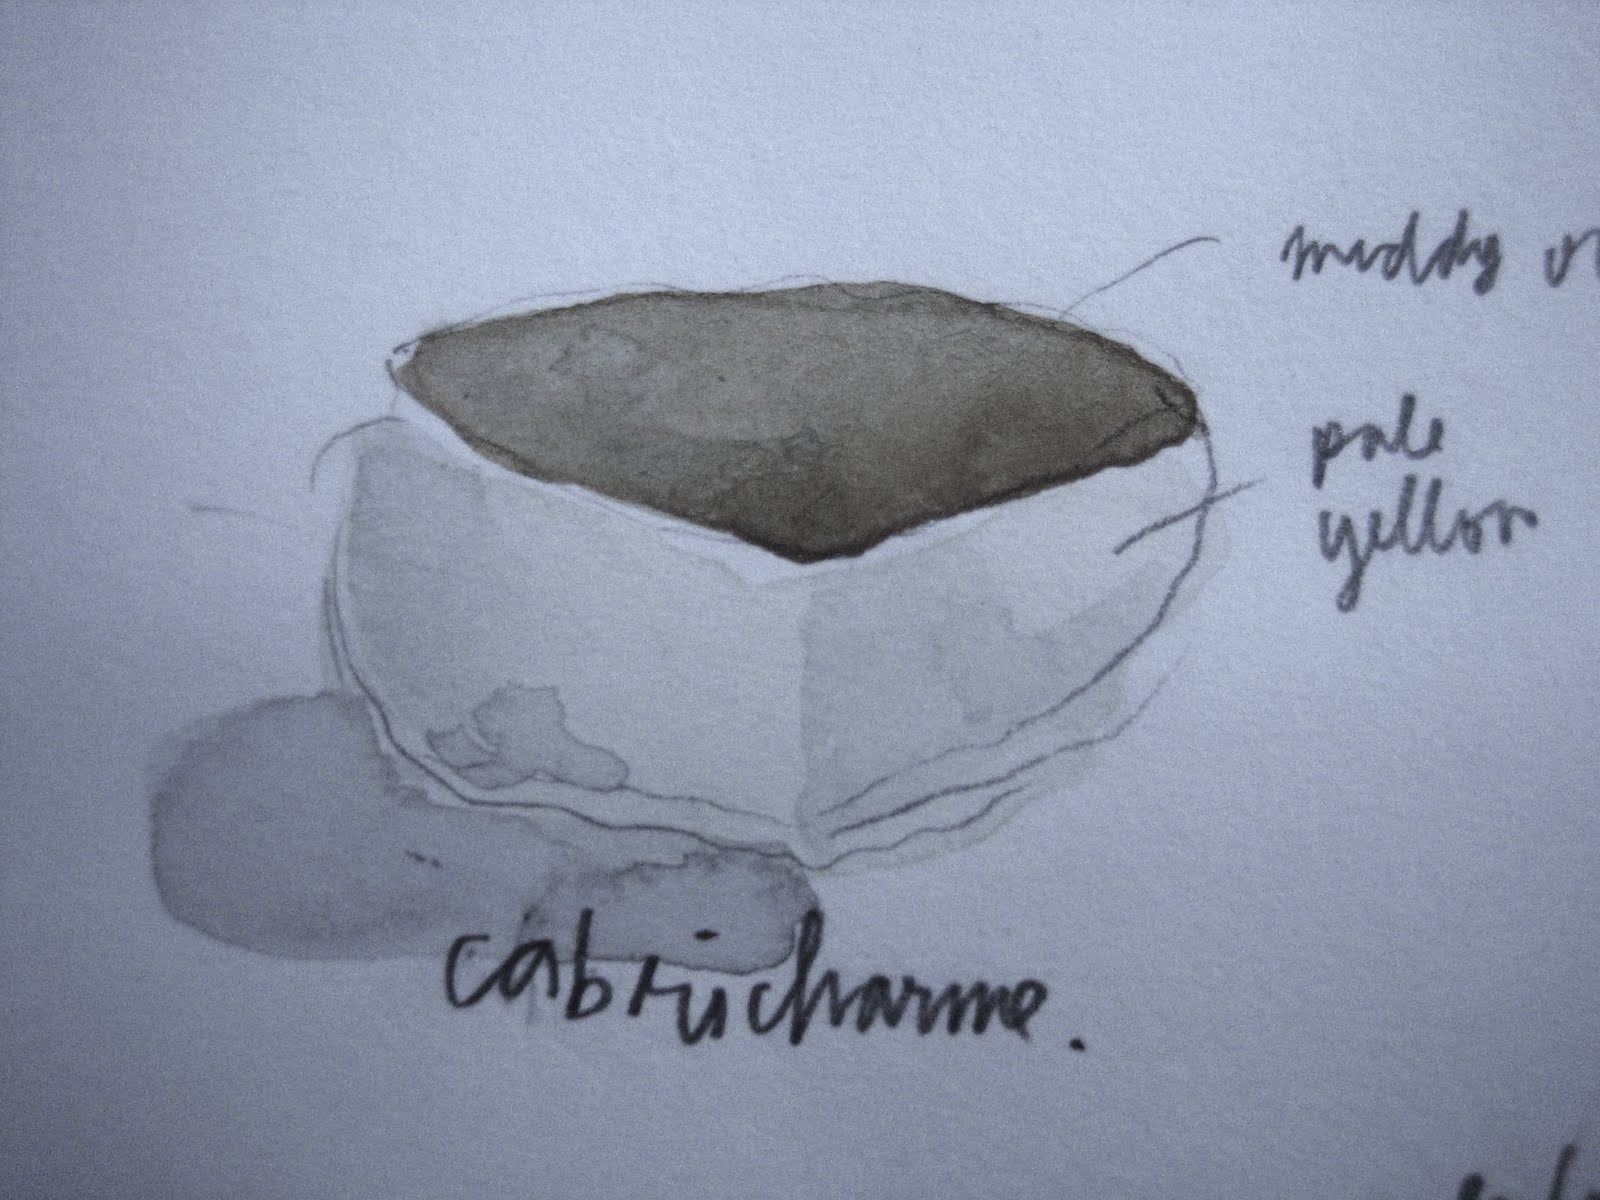 muddy
pale
yellow
cabricharme.